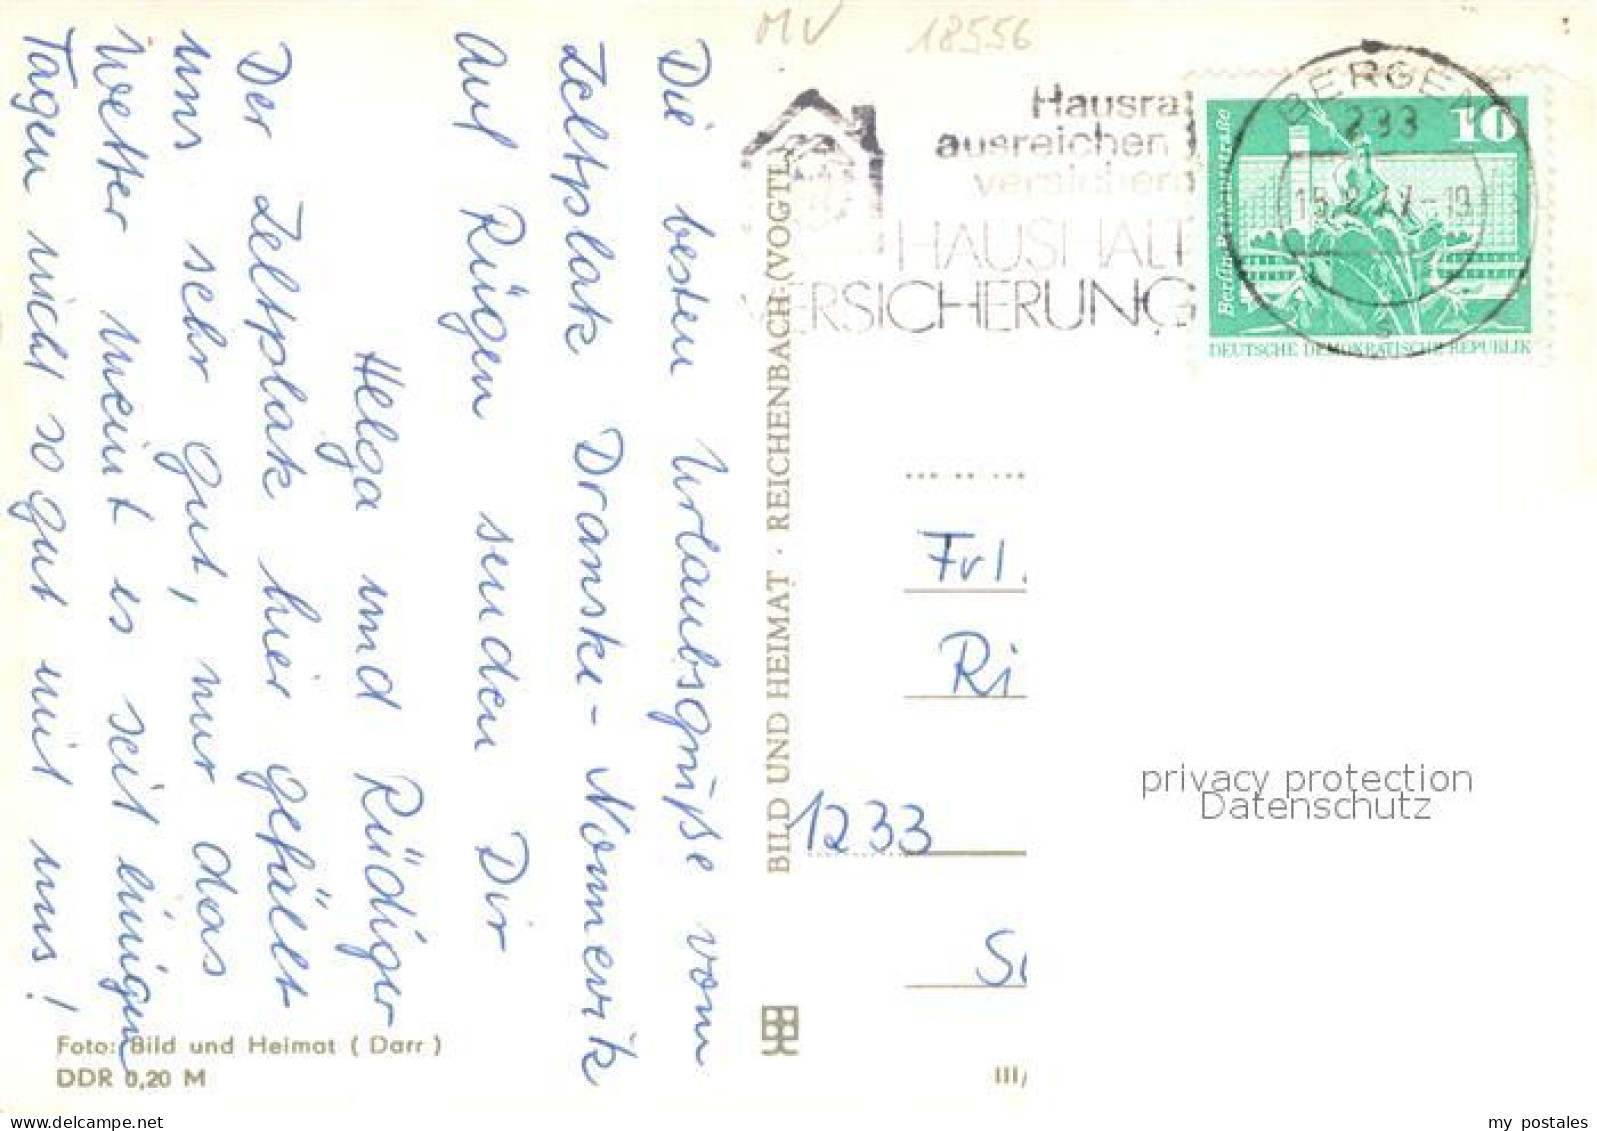 MV 18556
Hausrat
ausreichend
versichern
HAUSHALT
VERSICHERUNG
BERGEN
233
10
Berlin, Rathausstraße
DEUTSCHE DEMOKRATISCHE REPUBLIK
Die besten Urlaubsgrüße vom
Zeltplatz Dranske-Nonnevik
Auf Rügen senden Dir
Helga und Rüdiger
Der Zeltplatz hier gefällt
uns sehr gut, nur das
Wetter meint es seit einigen
Tagen nicht so gut mit uns!
BILD UND HEIMAT · REICHENBACH (VOGTL)
Frl.
Ri
1233
privacy protection
Datenschutz
Foto: Bild und Heimat (Darr)
DDR 0,20 M
III/
my postales